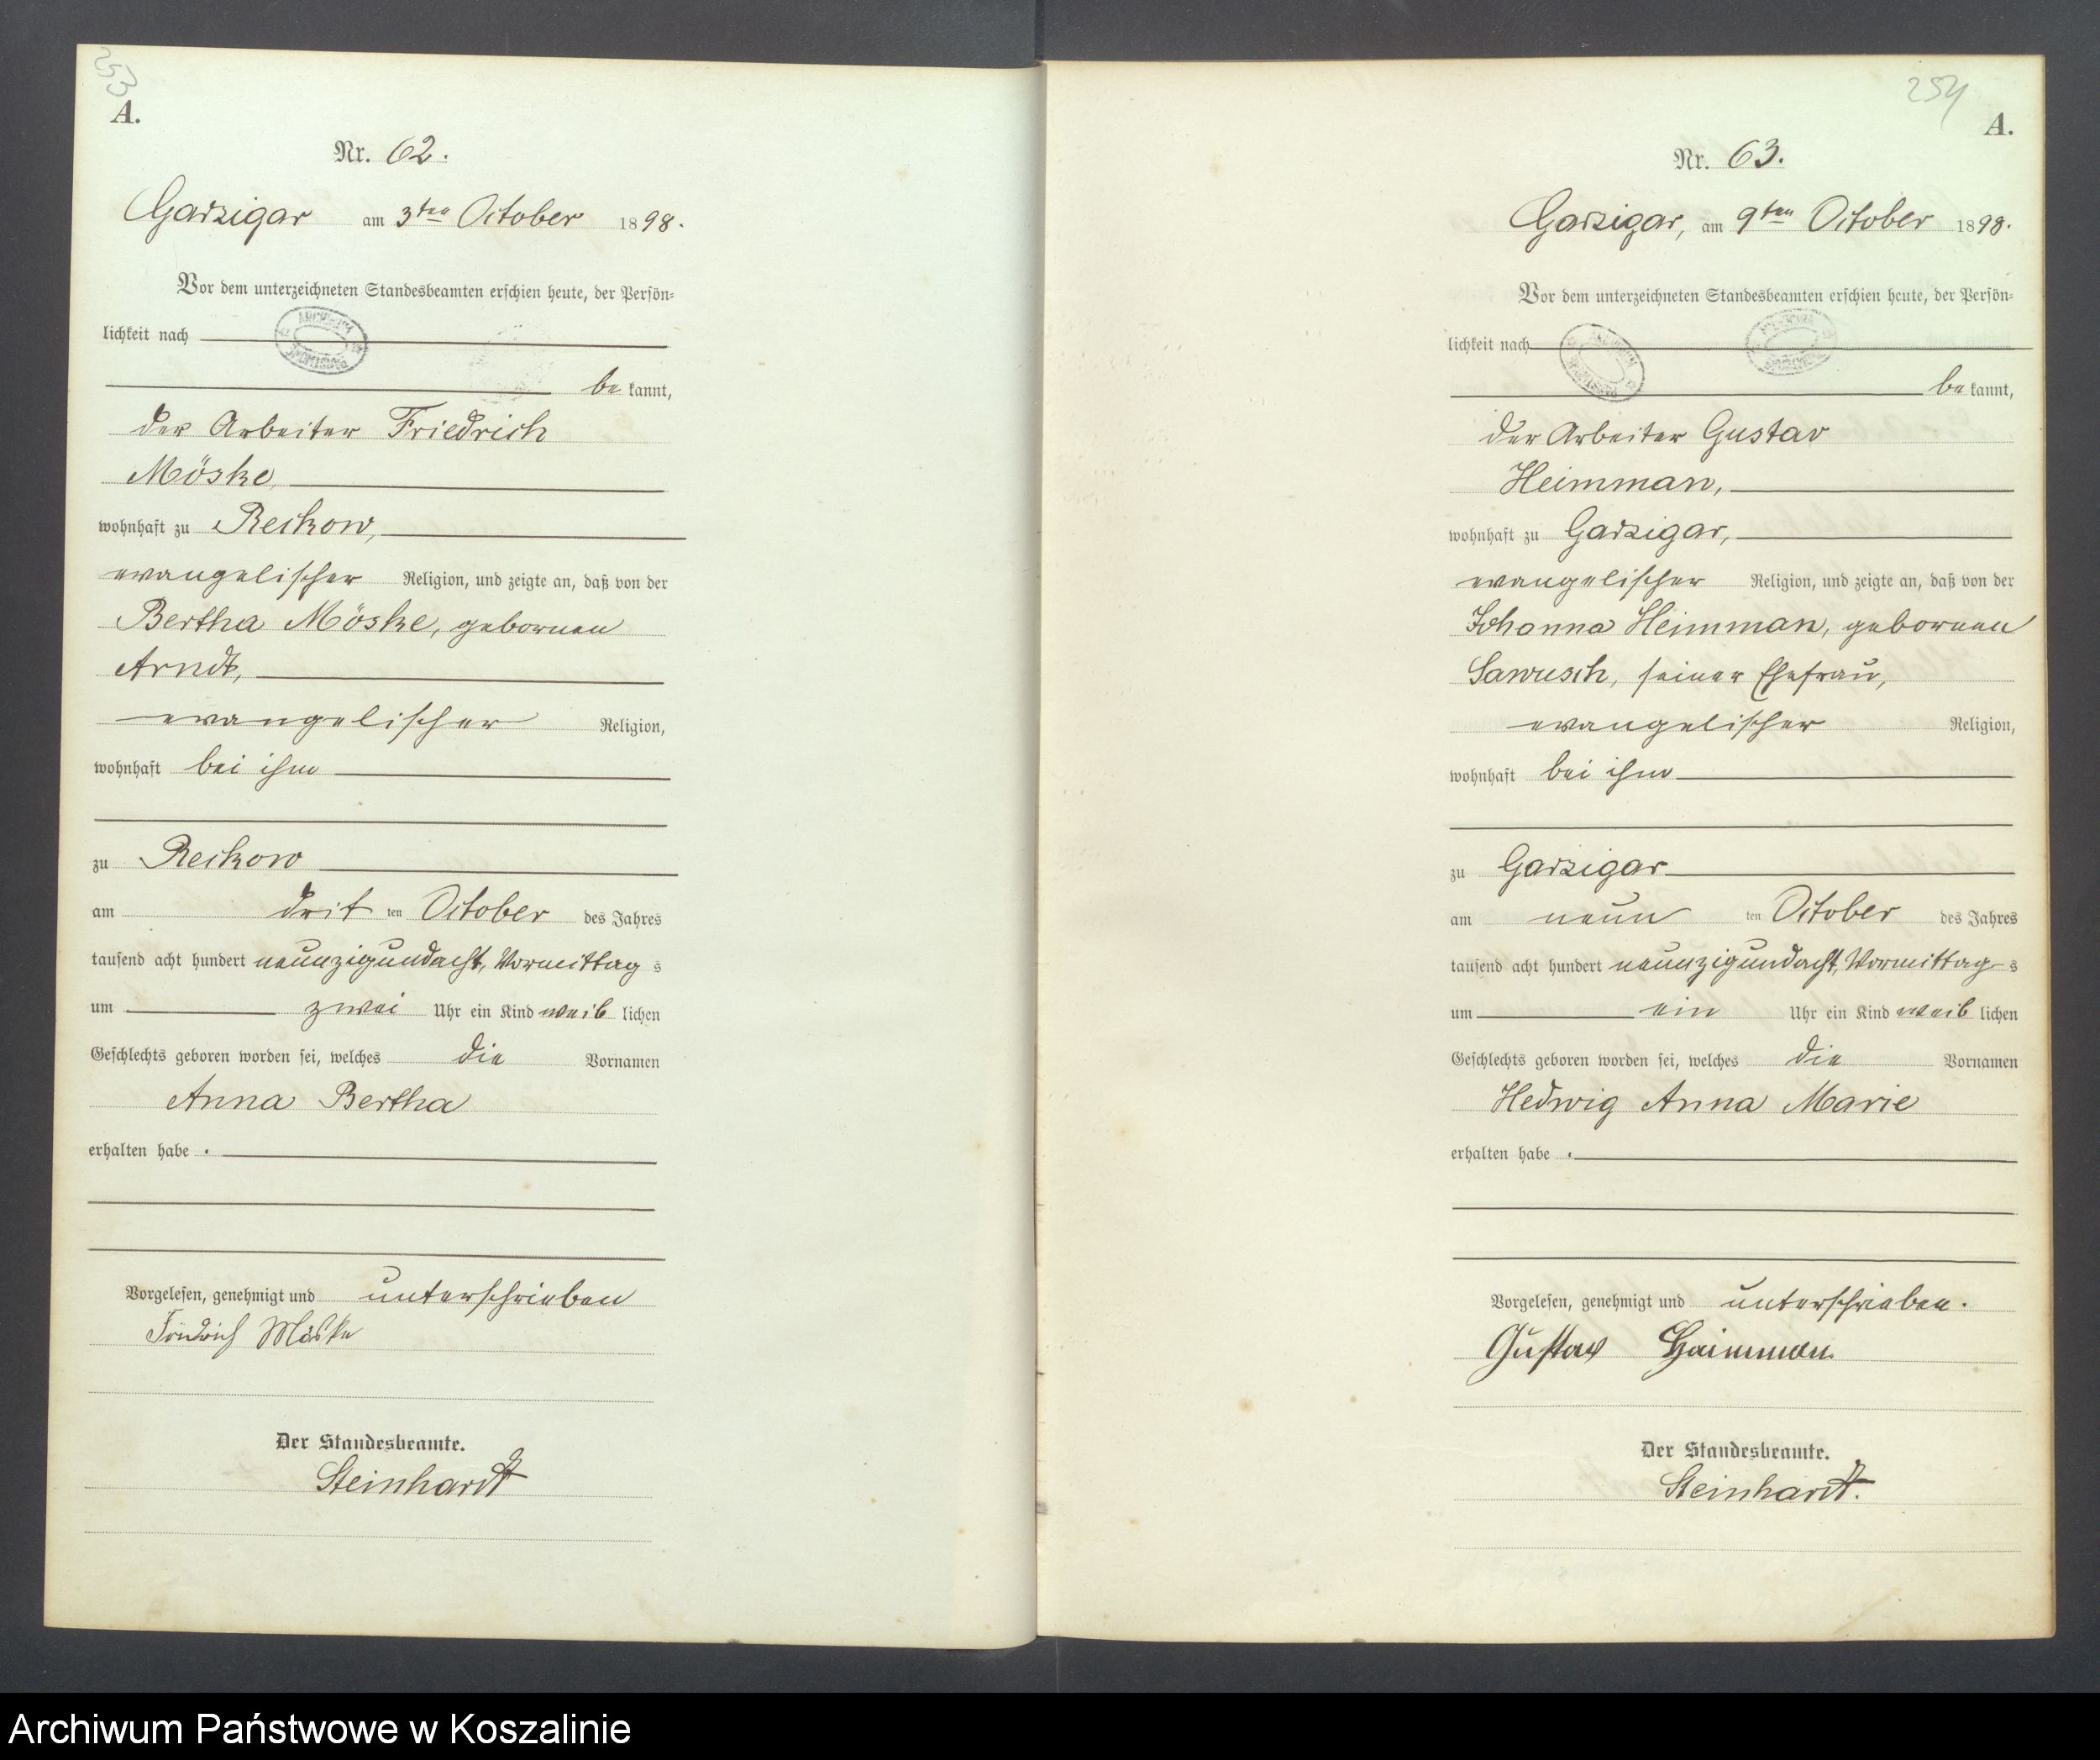 253
A.
Nr. 62.
Garzigar am 3ten October 1898.
Vor dem unterzeichneten Standesbeamten erschien heute, der Persön=
lichkeit nach
be kannt,
der Arbeiter Friedrich
Möske,
wohnhaft zu Reckow,
evangelischer Religion, und zeigte an, daß von der
Bertha Möske, gebornen
Arndt,
evangelischer Religion,
wohnhaft bei ihm
zu Reckow
am drit ten October des Jahres
tausend acht hundert neunzigundacht, Vormittag s
um zwei Uhr ein Kind weib lichen
Geschlechts geboren worden sei, welches die Vornamen
Anna Bertha
erhalten habe .
Vorgelesen, genehmigt und unterschrieben
Friedrich Möske
Der Standesbeamte.
Steinhardt
254
A.
Nr. 63.
Garzigar, am 9ten October 1898.
Vor dem unterzeichneten Standesbeamten erschien heute, der Persön=
lichkeit nach
be kannt,
der Arbeiter Gustav
Heimman,
wohnhaft zu Garzigar,
evangelischer Religion, und zeigte an, daß von der
Johanna Heimman, gebornen
Sawusch, seiner Ehefrau,
evangelischer Religion,
wohnhaft bei ihm
zu Garzigar
am neun ten October des Jahres
tausend acht hundert neunzigundacht, Vormittag s
um ein Uhr ein Kind weib lichen
Geschlechts geboren worden sei, welches die Vornamen
Hedwig Anna Marie
erhalten habe .
Vorgelesen, genehmigt und unterschrieben.
Gustav Heimman
Der Standesbeamte.
Steinhardt.
Archiwum Państwowe w Koszalinie